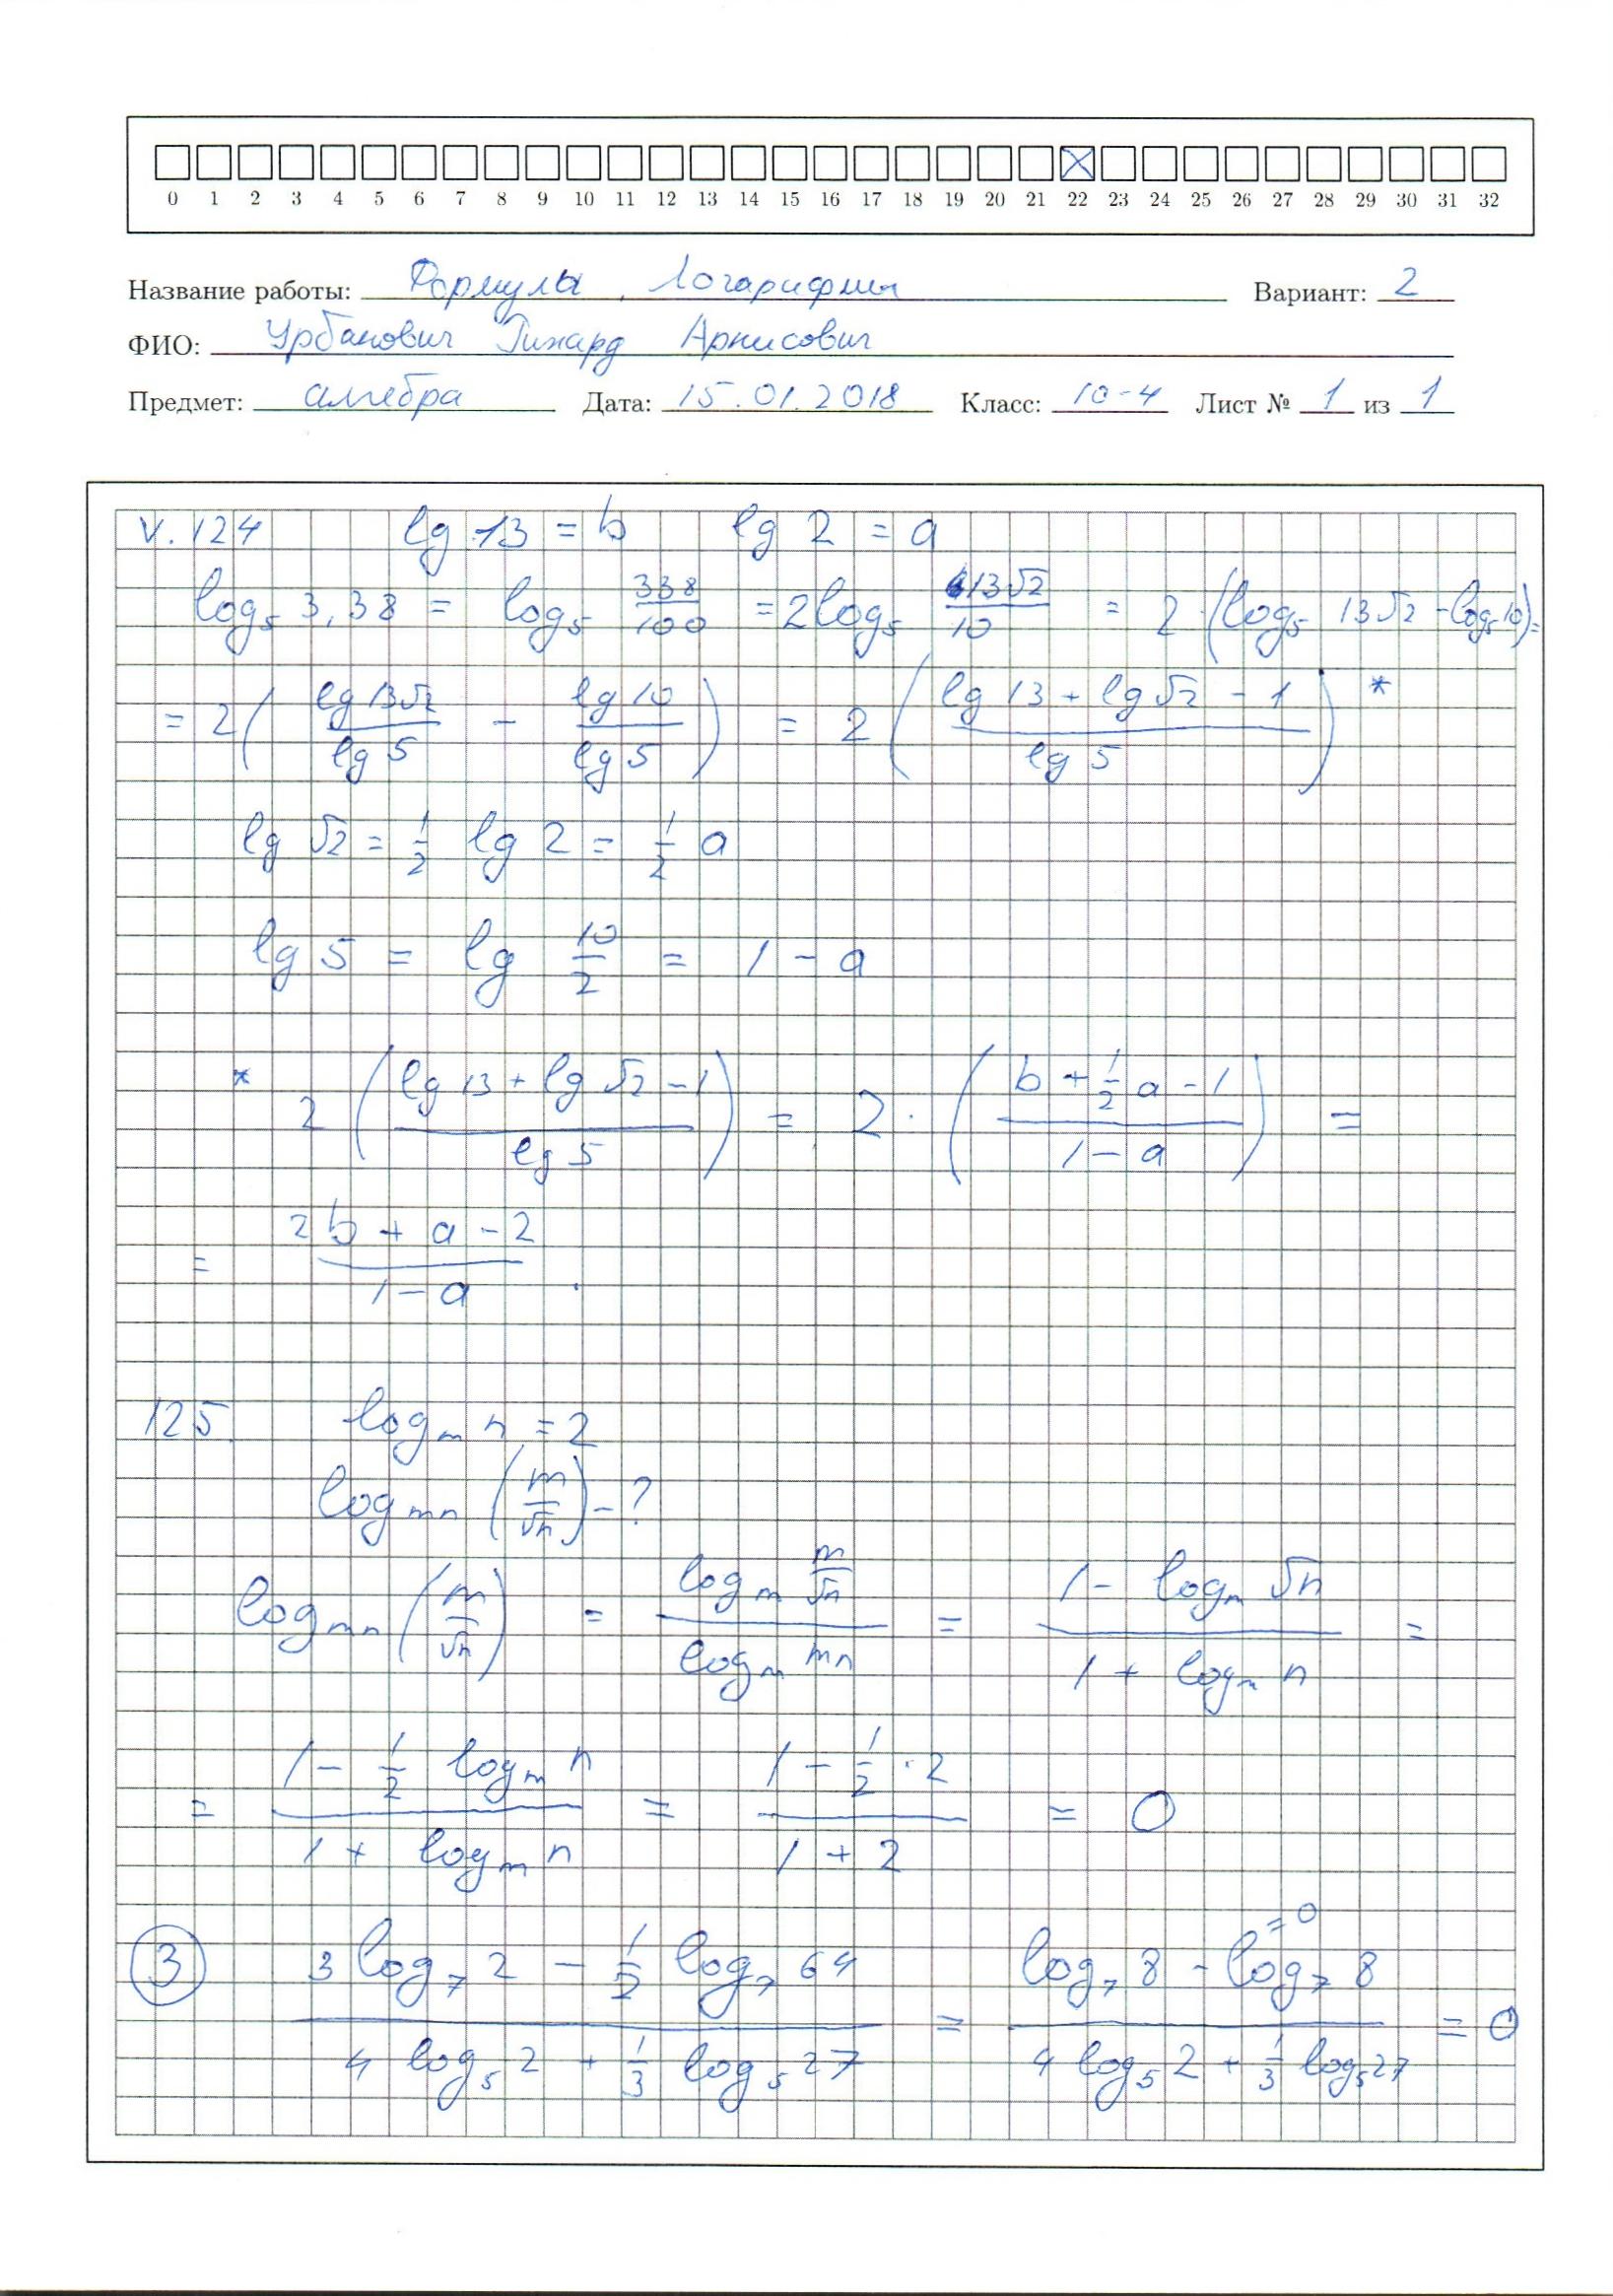 0 1 2 3 4 5 6 7 8 9 10 11 12 13 14 15 16 17 18 19 20 21 22 23 24 25 26 27 28 29 30 31 32
Название работы: Формулы, Логарифмы Вариант: 2
ФИО: Урбанович Рихард Арнисович
Предмет: алгебра Дата: 15.01.2018 Класс: 10-4 Лист № 1 из 1
V.124 lg 13 = b lg 2 = a
log₅ 3,38 = log₅ 338/100 = 2log₅ 13√2/10 = 2·(log₅ 13√2 - log₅ 10) =
= 2( lg 13√2 / lg 5 - lg 10 / lg 5 ) = 2( (lg 13 + lg √2 - 1) / lg 5 ) *
lg √2 = 1/2 lg 2 = 1/2 a
lg 5 = lg 10/2 = 1 - a
* 2( (lg 13 + lg √2 - 1) / lg 5 ) = 2·( (b + 1/2 a - 1) / (1 - a) ) =
= (2b + a - 2) / (1 - a) .
125. logₘ n = 2
logₘₙ (m/√n) - ?
logₘₙ (m/√n) = logₘ m/√n / logₘ mn = (1 - logₘ √n) / (1 + logₘ n) =
= (1 - 1/2 logₘ n) / (1 + logₘ n) = (1 - 1/2 · 2) / (1 + 2) = 0
③ (3 log₇ 2 - 1/2 log₇ 64) / (4 log₅ 2 + 1/3 log₅ 27) = (log₇ 8 - log₇ 8 = 0) / (4 log₅ 2 + 1/3 log₅ 27) = 0